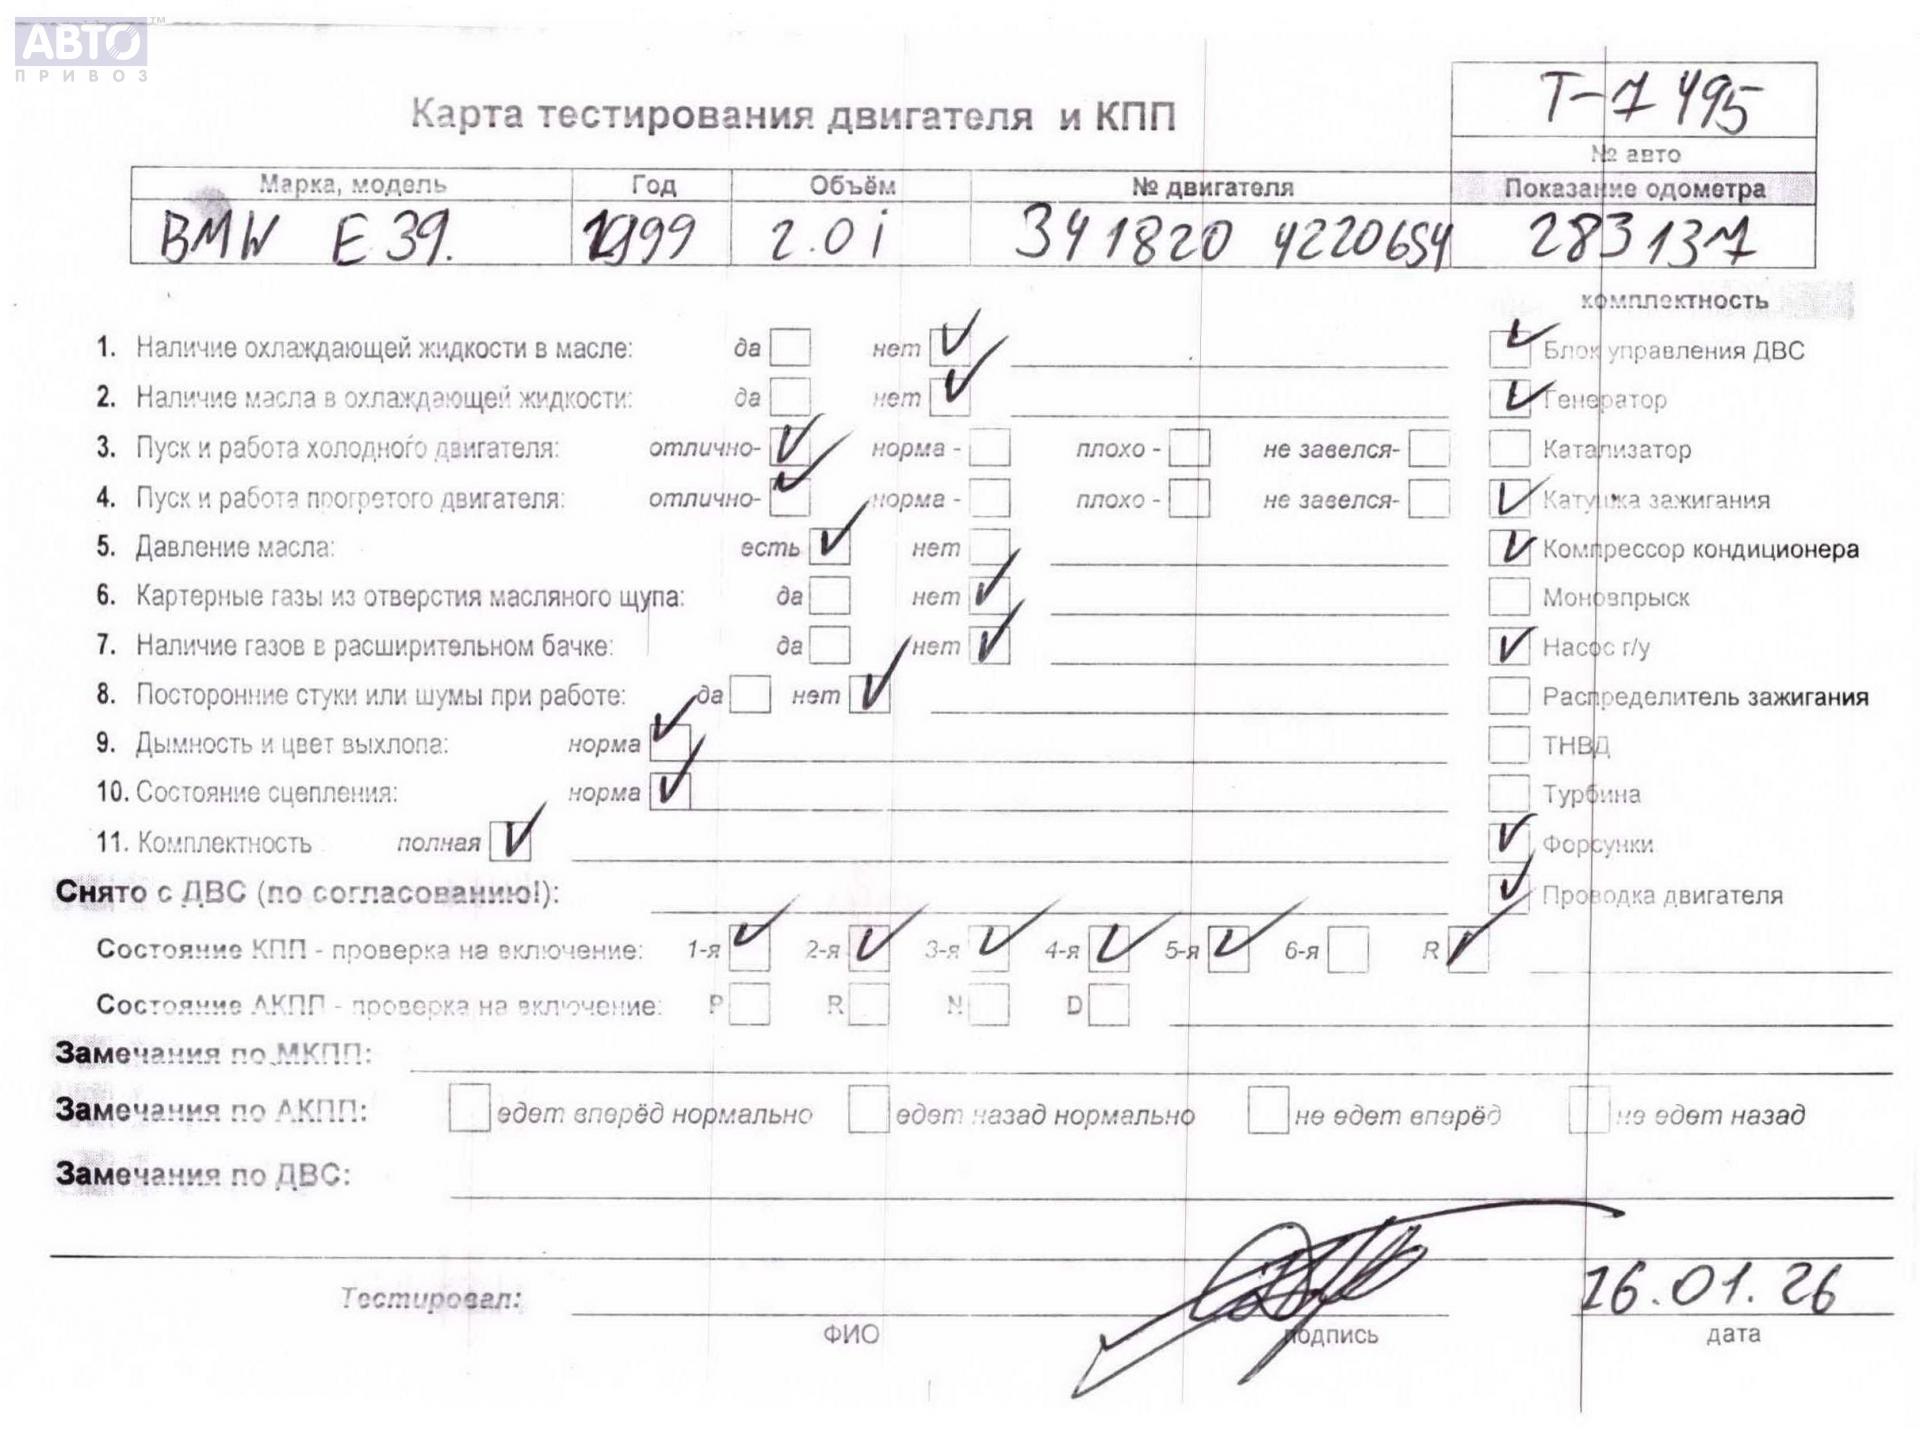 АВТО™
ПРИВОЗ
Т-7 495
№ авто
Карта тестирования двигателя и КПП
Марка, модель Год Объём № двигателя Показание одометра
BMW E39. 1999 2.0i 341820 4220654 283137
комплектность
1. Наличие охлаждающей жидкости в масле: да нет Блок управления ДВС
2. Наличие масла в охлаждающей жидкости: да нет Генератор
3. Пуск и работа холодного двигателя: отлично- норма - плохо - не завелся- Катализатор
4. Пуск и работа прогретого двигателя: отлично- норма - плохо - не завелся- Катушка зажигания
5. Давление масла: есть нет Компрессор кондиционера
6. Картерные газы из отверстия масляного щупа: да нет Моновпрыск
7. Наличие газов в расширительном бачке: да нет Насос г/у
8. Посторонние стуки или шумы при работе: да нет Распределитель зажигания
9. Дымность и цвет выхлопа: норма ТНВД
10. Состояние сцепления: норма Турбина
11. Комплектность полная Форсунки
Снято с ДВС (по согласованию!): Проводка двигателя
Состояние КПП - проверка на включение: 1-я 2-я 3-я 4-я 5-я 6-я R
Состояние АКПП - проверка на включение: P R N D
Замечания по МКПП:
Замечания по АКПП: едет вперёд нормально едет назад нормально не едет вперёд не едет назад
Замечания по ДВС:
Тестировал: 26.01.26
ФИО подпись дата